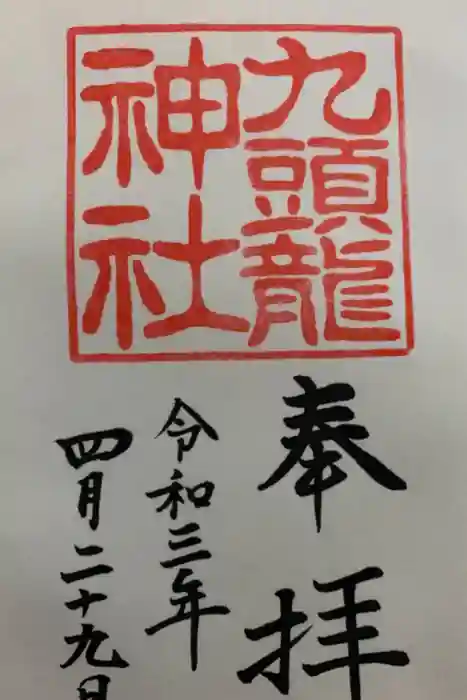 九頭龍
神社
奉拝
令和三年
四月二十九日